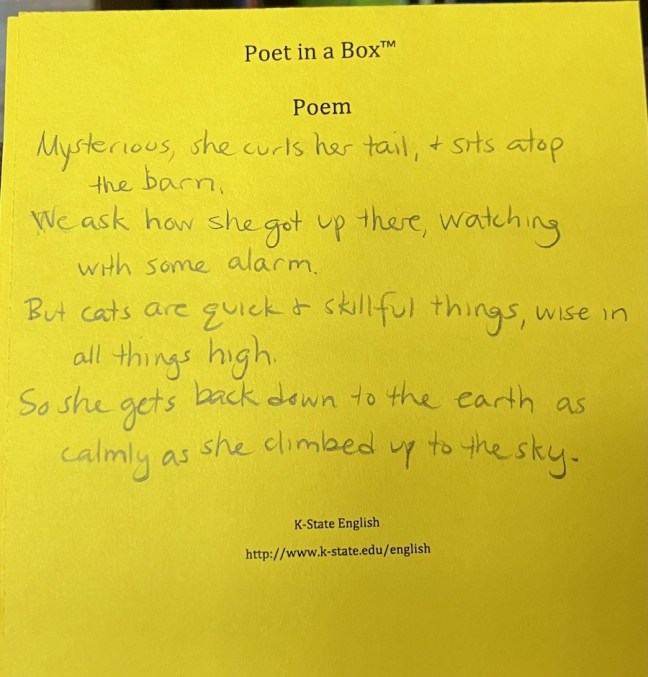 Poet in a Box™
Poem
Mysterious, she curls her tail, + sits atop
the barn.
We ask how she got up there, watching
with some alarm.
But cats are quick & skillful things, wise in
all things high.
So she gets back down to the earth as
calmly as she climbed up to the sky.
K-State English
http://www.k-state.edu/english